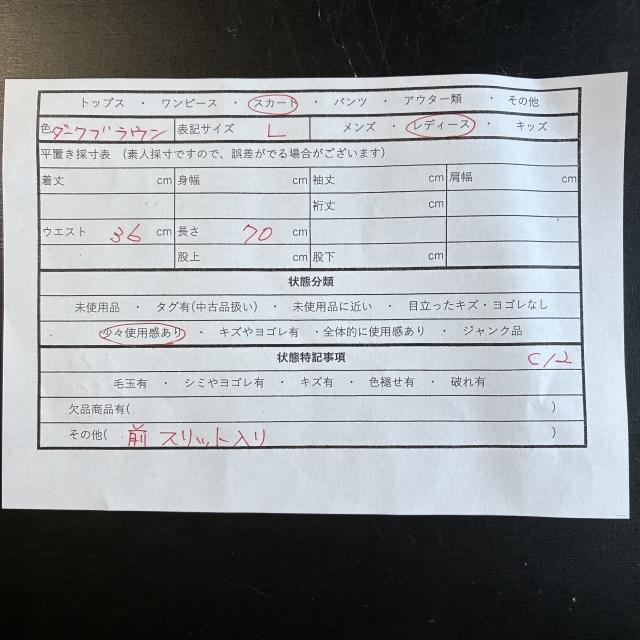 トップス ・ ワンピース ・ スカート ・ パンツ ・ アウター類 ・ その他
色 ダークブラウン 表記サイズ L メンズ ・ レディース ・ キッズ
平置き採寸表 (素人採寸ですので、誤差がでる場合がございます)
着丈 cm 身幅 cm 袖丈 cm 肩幅 cm
裄丈 cm
ウエスト 36 cm 長さ 70 cm
股上 cm 股下 cm
状態分類
未使用品 ・ タグ有(中古品扱い) ・ 未使用品に近い ・ 目立ったキズ・ヨゴレなし
少々使用感あり ・ キズやヨゴレ有 ・全体的に使用感あり ・ ジャンク品
状態特記事項 C/2
毛玉有 ・ シミやヨゴレ有 ・ キズ有 ・ 色褪せ有 ・ 破れ有
欠品商品有( )
その他( 前 スリット入リ )